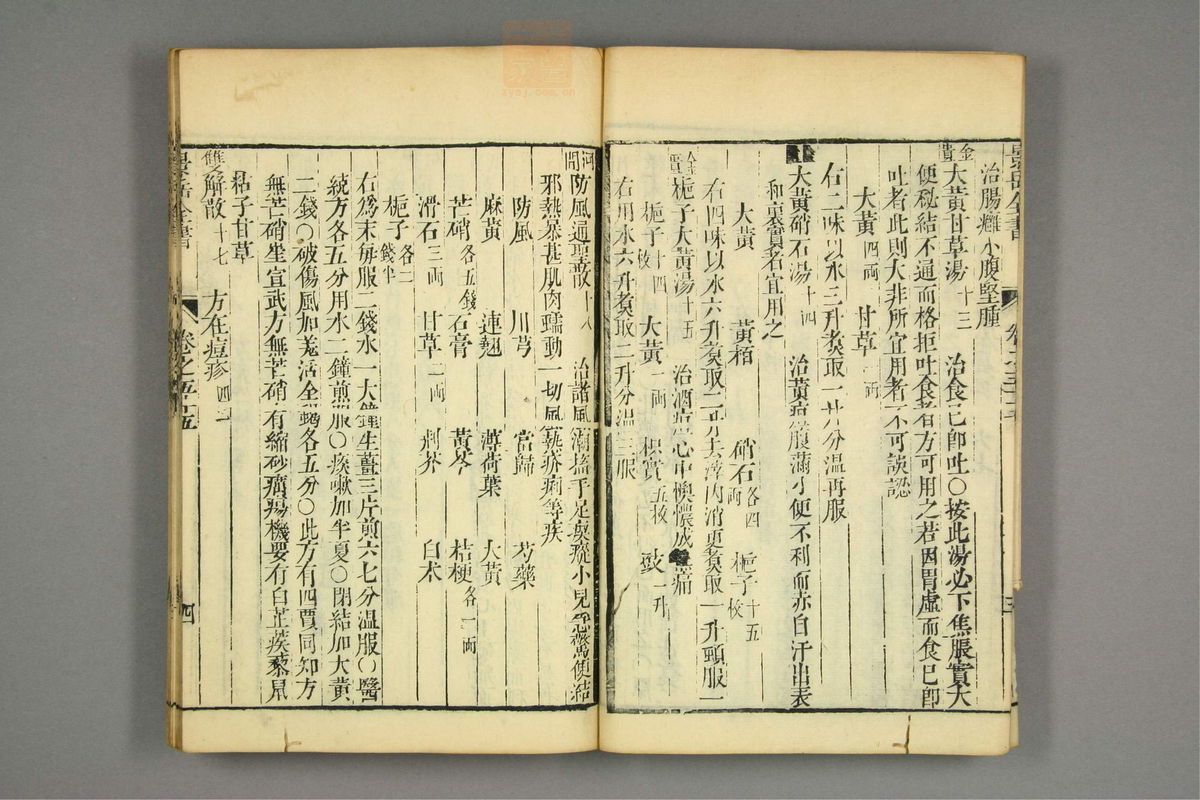 治腸癰小腹堅腫
金匱大黃甘草湯十三 治食已卽吐○按此湯必下焦脹實大
便秘結不通而格拒吐食者方可用之若因胃虛而食已卽
吐者此則大非所宜用者不可誤認
大黃四兩 甘草一兩
右二味以水三升煮取一升分溫再服
大黃硝石湯十四 治黃疸腹滿小便不利而赤自汗出表
和裏實者宜用之
大黃 黃栢 硝石各四兩 梔子十五枚
右四味以水六升煮取二升去滓內消更煮取一升頓服一
金匱梔子大黃湯十五 治酒疸心中懊憹或熱痛
梔子十四枚 大黃一兩 枳實五枚 豉一升
右用水六升煮取二升分溫三服
河間防風通聖散十六 治諸風潮搐手足瘈瘲小兒急驚便結
邪熱暴甚肌肉蠕動一切風熱疥痢等疾
防風 川芎 當歸 芍藥
麻黃 連翹 薄荷葉 大黃
芒硝各五錢 石膏 黃芩 桔梗各一兩
滑石三兩 甘草二兩 荆芥 白朮
梔子各二錢半
右爲末每服二錢水一大鐘生薑三片煎六七分溫服○醫
統方各五分用水二鐘煎服○痰嗽加半夏○閉結加大黃
二錢○破傷風加羗活全蝎各五分○此方有四賈同知方
無芒硝崔宣武方無芒硝有縮砂
機要有白芷蒺藜鼠
粘子甘草
雙解散十七 方在痘疹四二
景岳全書
卷之五十五
四